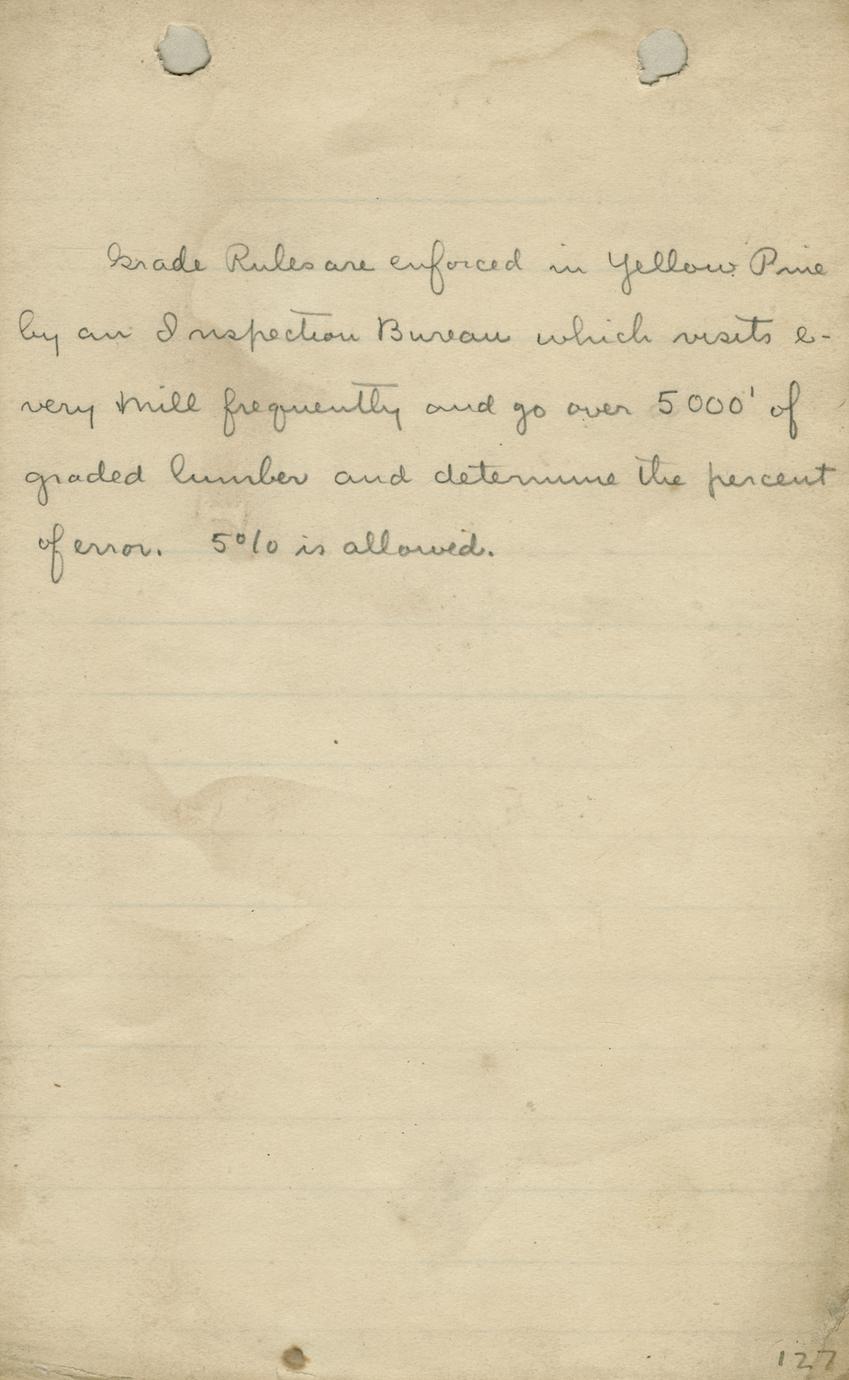 Grade Rules are enforced in Yellow Pine
by an Inspection Bureau which visits e-
very Mill frequently and go over 5000' of
graded lumber and determine the percent
of error. 5% is allowed.
127